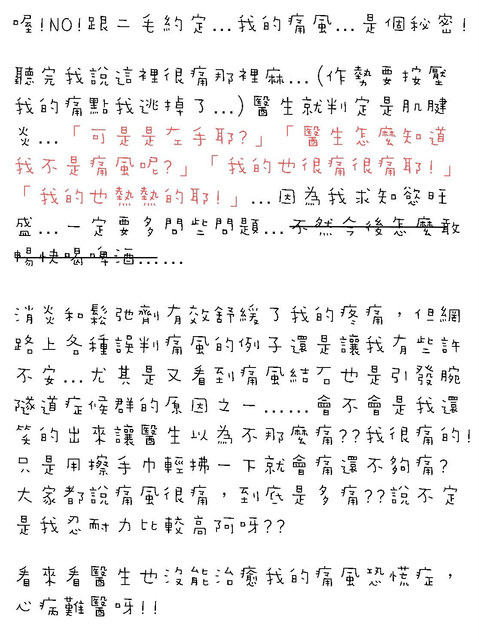 喔!NO!跟二毛約定...我的痛風...是個秘密!
聽完我說這裡很痛那裡麻...(作勢要按壓
我的痛點我逃掉了...)醫生就判定是肌腱
炎...「可是是左手耶?」「醫生怎麼知道
我不是痛風呢?」「我的也很痛很痛耶!」
「我的也熱熱的耶!」...因為我求知慾旺
盛...一定要多問些問題...不然今後怎麼敢
暢快喝啤酒......
消炎和鬆弛劑有效舒緩了我的疼痛，但網
路上各種誤判痛風的例子還是讓我有些許
不安...尤其是又看到痛風結石也是引發腕
隧道症候群的原因之一......會不會是我還
笑的出來讓醫生以為不那麼痛??我很痛的!
只是用擦手巾輕拂一下就會痛還不夠痛?
大家都說痛風很痛，到底是多痛??說不定
是我忍耐力比較高阿呀??
看來看醫生也沒能治癒我的痛風恐慌症，
心病難醫呀!!